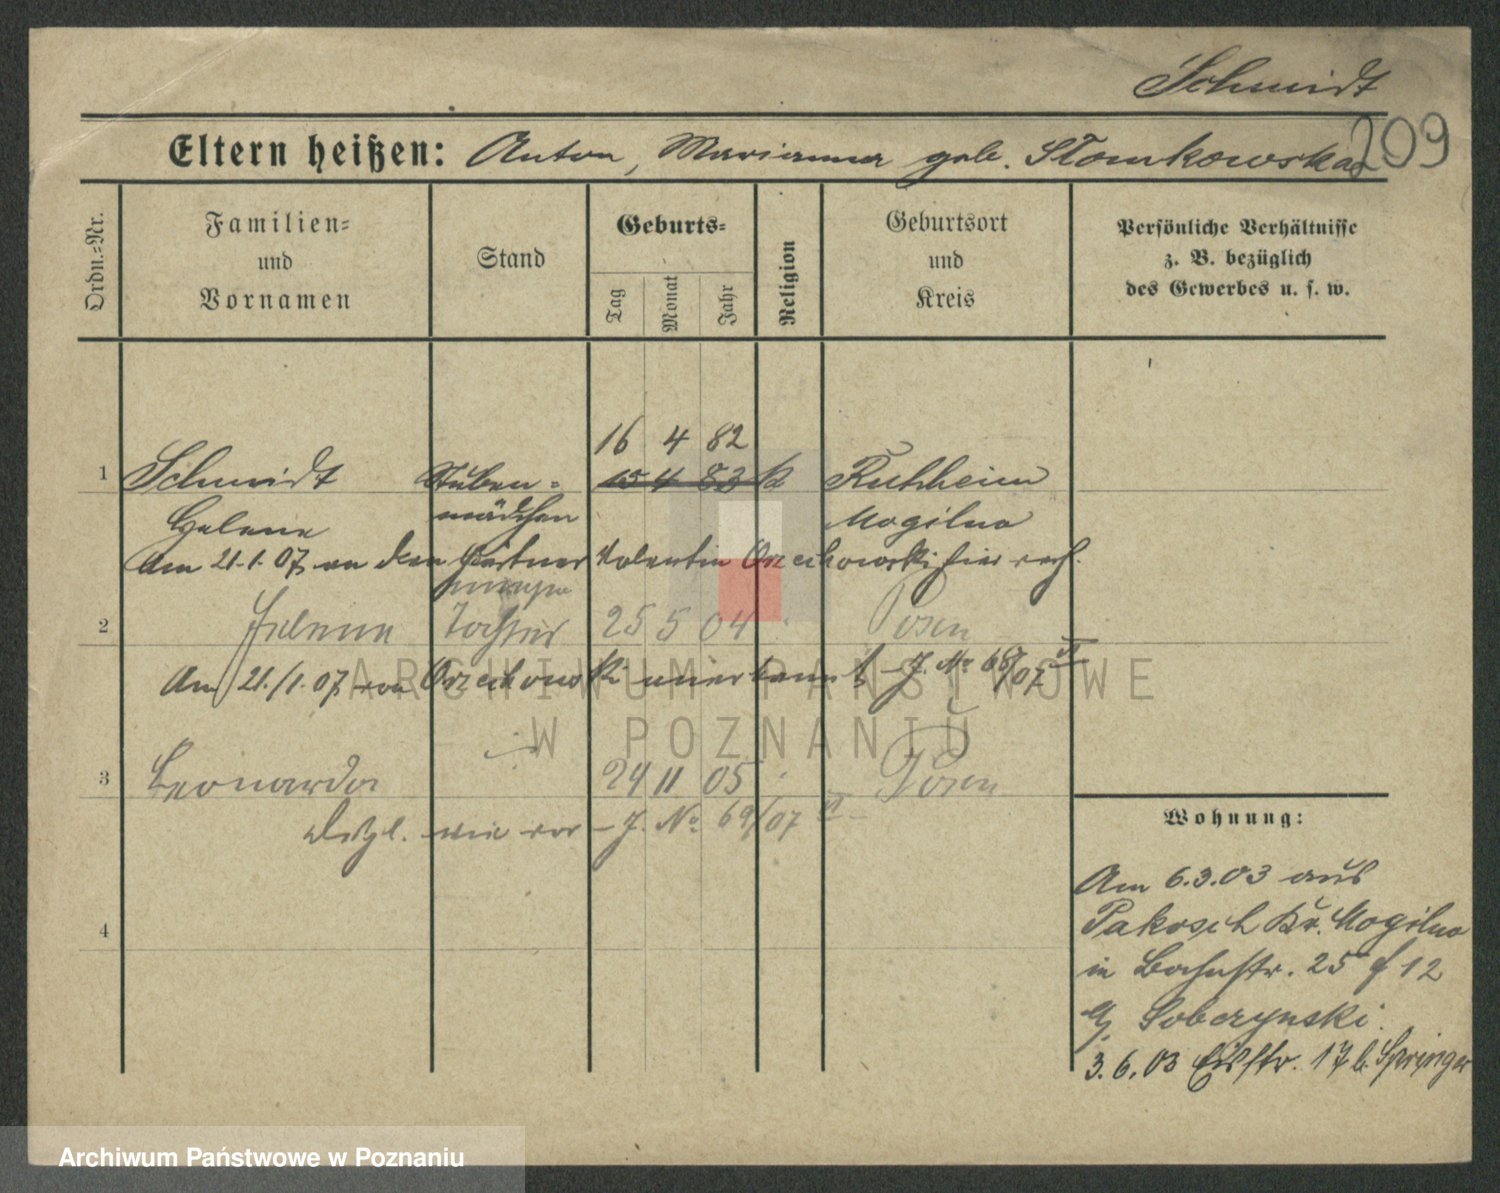 Schmidt
209
Eltern heißen: Anton, Marianna geb. Słomkowska
Ordn.=Nr.
Familien=
und
Vornamen
Stand
Geburts=
Tag
Monat
Jahr
Religion
Geburtsort
und
Kreis
Persönliche Verhältnisse
z. B. bezüglich
des Gewerbes u. s. w.
16 4 82
1 Schmidt Stuben= 15 4 83 k Ruhheim
Helene mädchen Mogilno
Am 21.1.07 an den Gärtner Valentin Orzechowski hier verh.
2 Helena Tochter 25 5 04 Posen
Am 21./1.07 von Orzechowski anerkannt - J. No 68/07 VI
3 Leonarda 24 11 05 Posen
Dsgl. wie vor - J. No 69/07 VI
4
Wohnung:
Am 6.3.03 aus
Pakosch Kr. Mogilno
in Bahnstr. 25 12
Sobczynski
3.6.03 17 b. Springer
ARCHIWUM PAŃSTWOWE
W POZNANIU
Archiwum Państwowe w Poznaniu